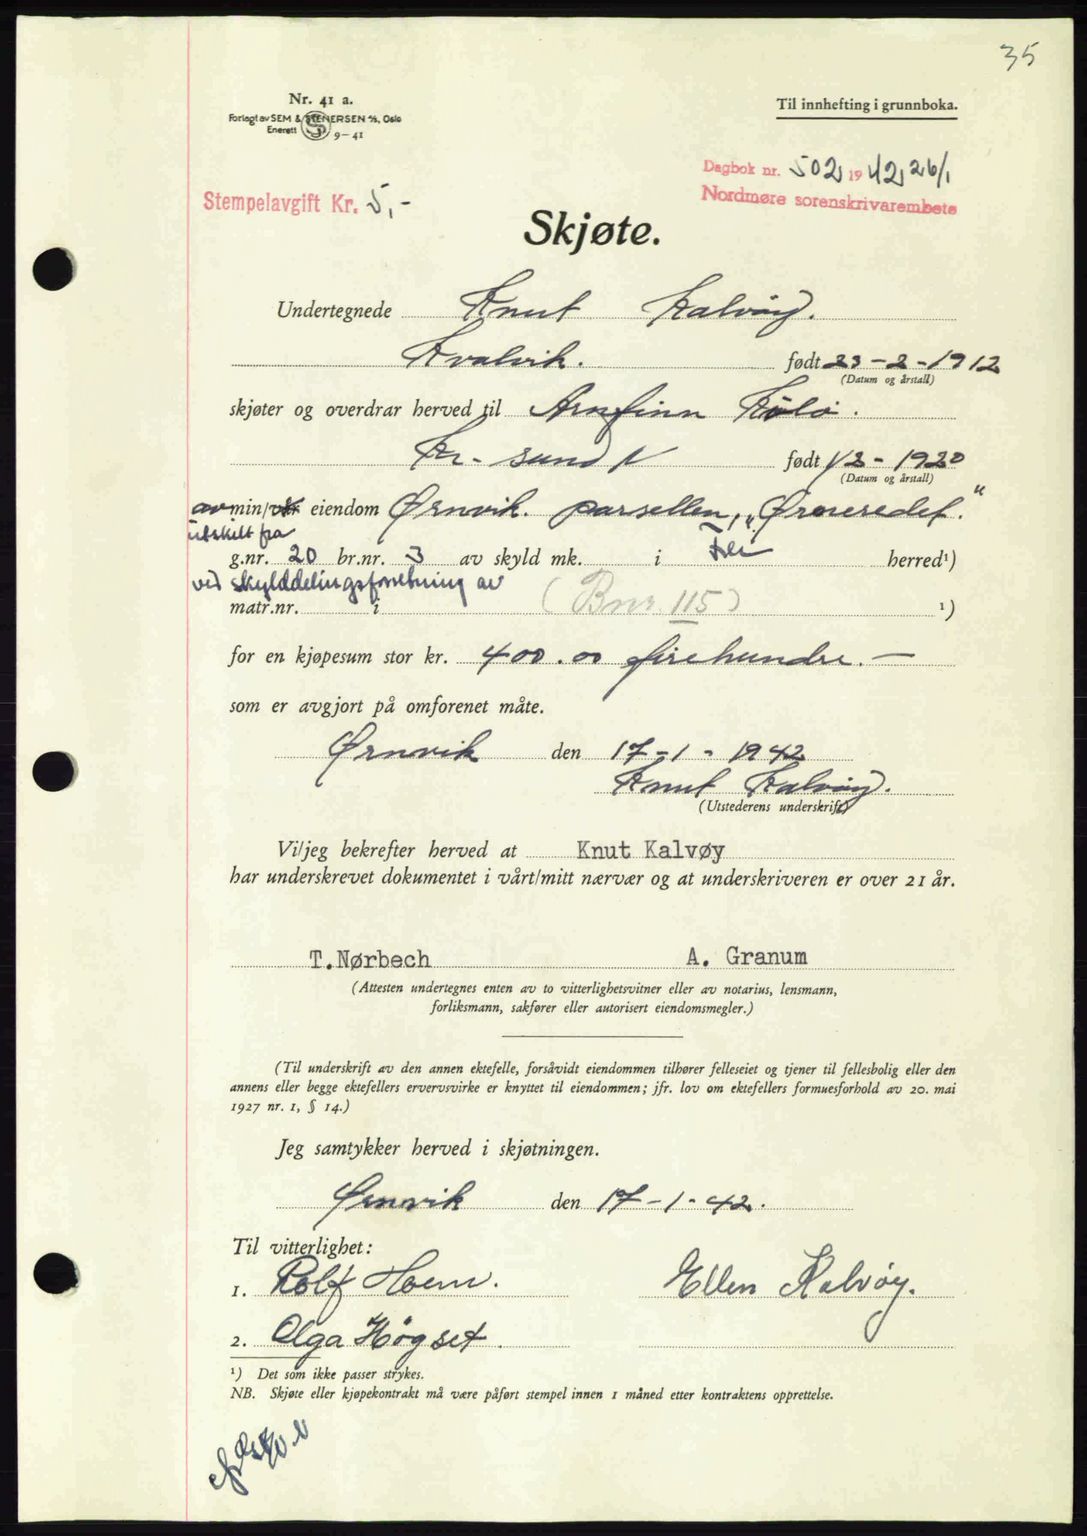 35
Nr. 41 a.
Forlagt av SEM & STENERSEN A/S, Oslo
Enerett 9-41
Til innhefting i grunnboka.
Dagbok nr. 502 1942 26/1
Nordmøre sorenskrivarembete
Stempelavgift Kr. 5,-
Skjøte.
Undertegnede Knut Kalvøy.
Kvalvik. født 23-2-1912
(Datum og årstall)
skjøter og overdrar herved til Arnfinn
Kr.sund N født 1/2-1920
(Datum og årstall)
av min/vår eiendom Ørnvik. parsellen,
utskilt fra
g.nr. 20 br.nr. 3 av skyld mk. i Frei herred¹)
ved skylddelingsforretning av
matr.nr. i (Bnr. 115) ¹)
for en kjøpesum stor kr. 400.00 firehundre.—
som er avgjort på omforenet måte.
Ørnvik den 17-1-1942
Knut Kalvøy.
(Utstederens underskrift)
Vi/jeg bekrefter herved at Knut Kalvøy
har underskrevet dokumentet i vårt/mitt nærvær og at underskriveren er over 21 år.
T.Nørbech A. Granum
(Attesten undertegnes enten av to vitterlighetsvitner eller av notarius, lensmann,
forliksmann, sakfører eller autorisert eiendomsmegler.)
(Til underskrift av den annen ektefelle, forsåvidt eiendommen tilhører felleseiet og tjener til fellesbolig eller den
annens eller begge ektefellers ervervsvirke er knyttet til eiendommen; jfr. lov om ektefellers formuesforhold av 20. mai
1927 nr. 1, § 14.)
Jeg samtykker herved i skjøtningen.
Ørnvik den 17-1-42.
Til vitterlighet:
1. Rolf Hoem. Ellen Kalvøy.
2. Olga Høgset.
¹) Det som ikke passer strykes.
NB. Skjøte eller kjøpekontrakt må være påført stempel innen 1 måned etter kontraktens opprettelse.